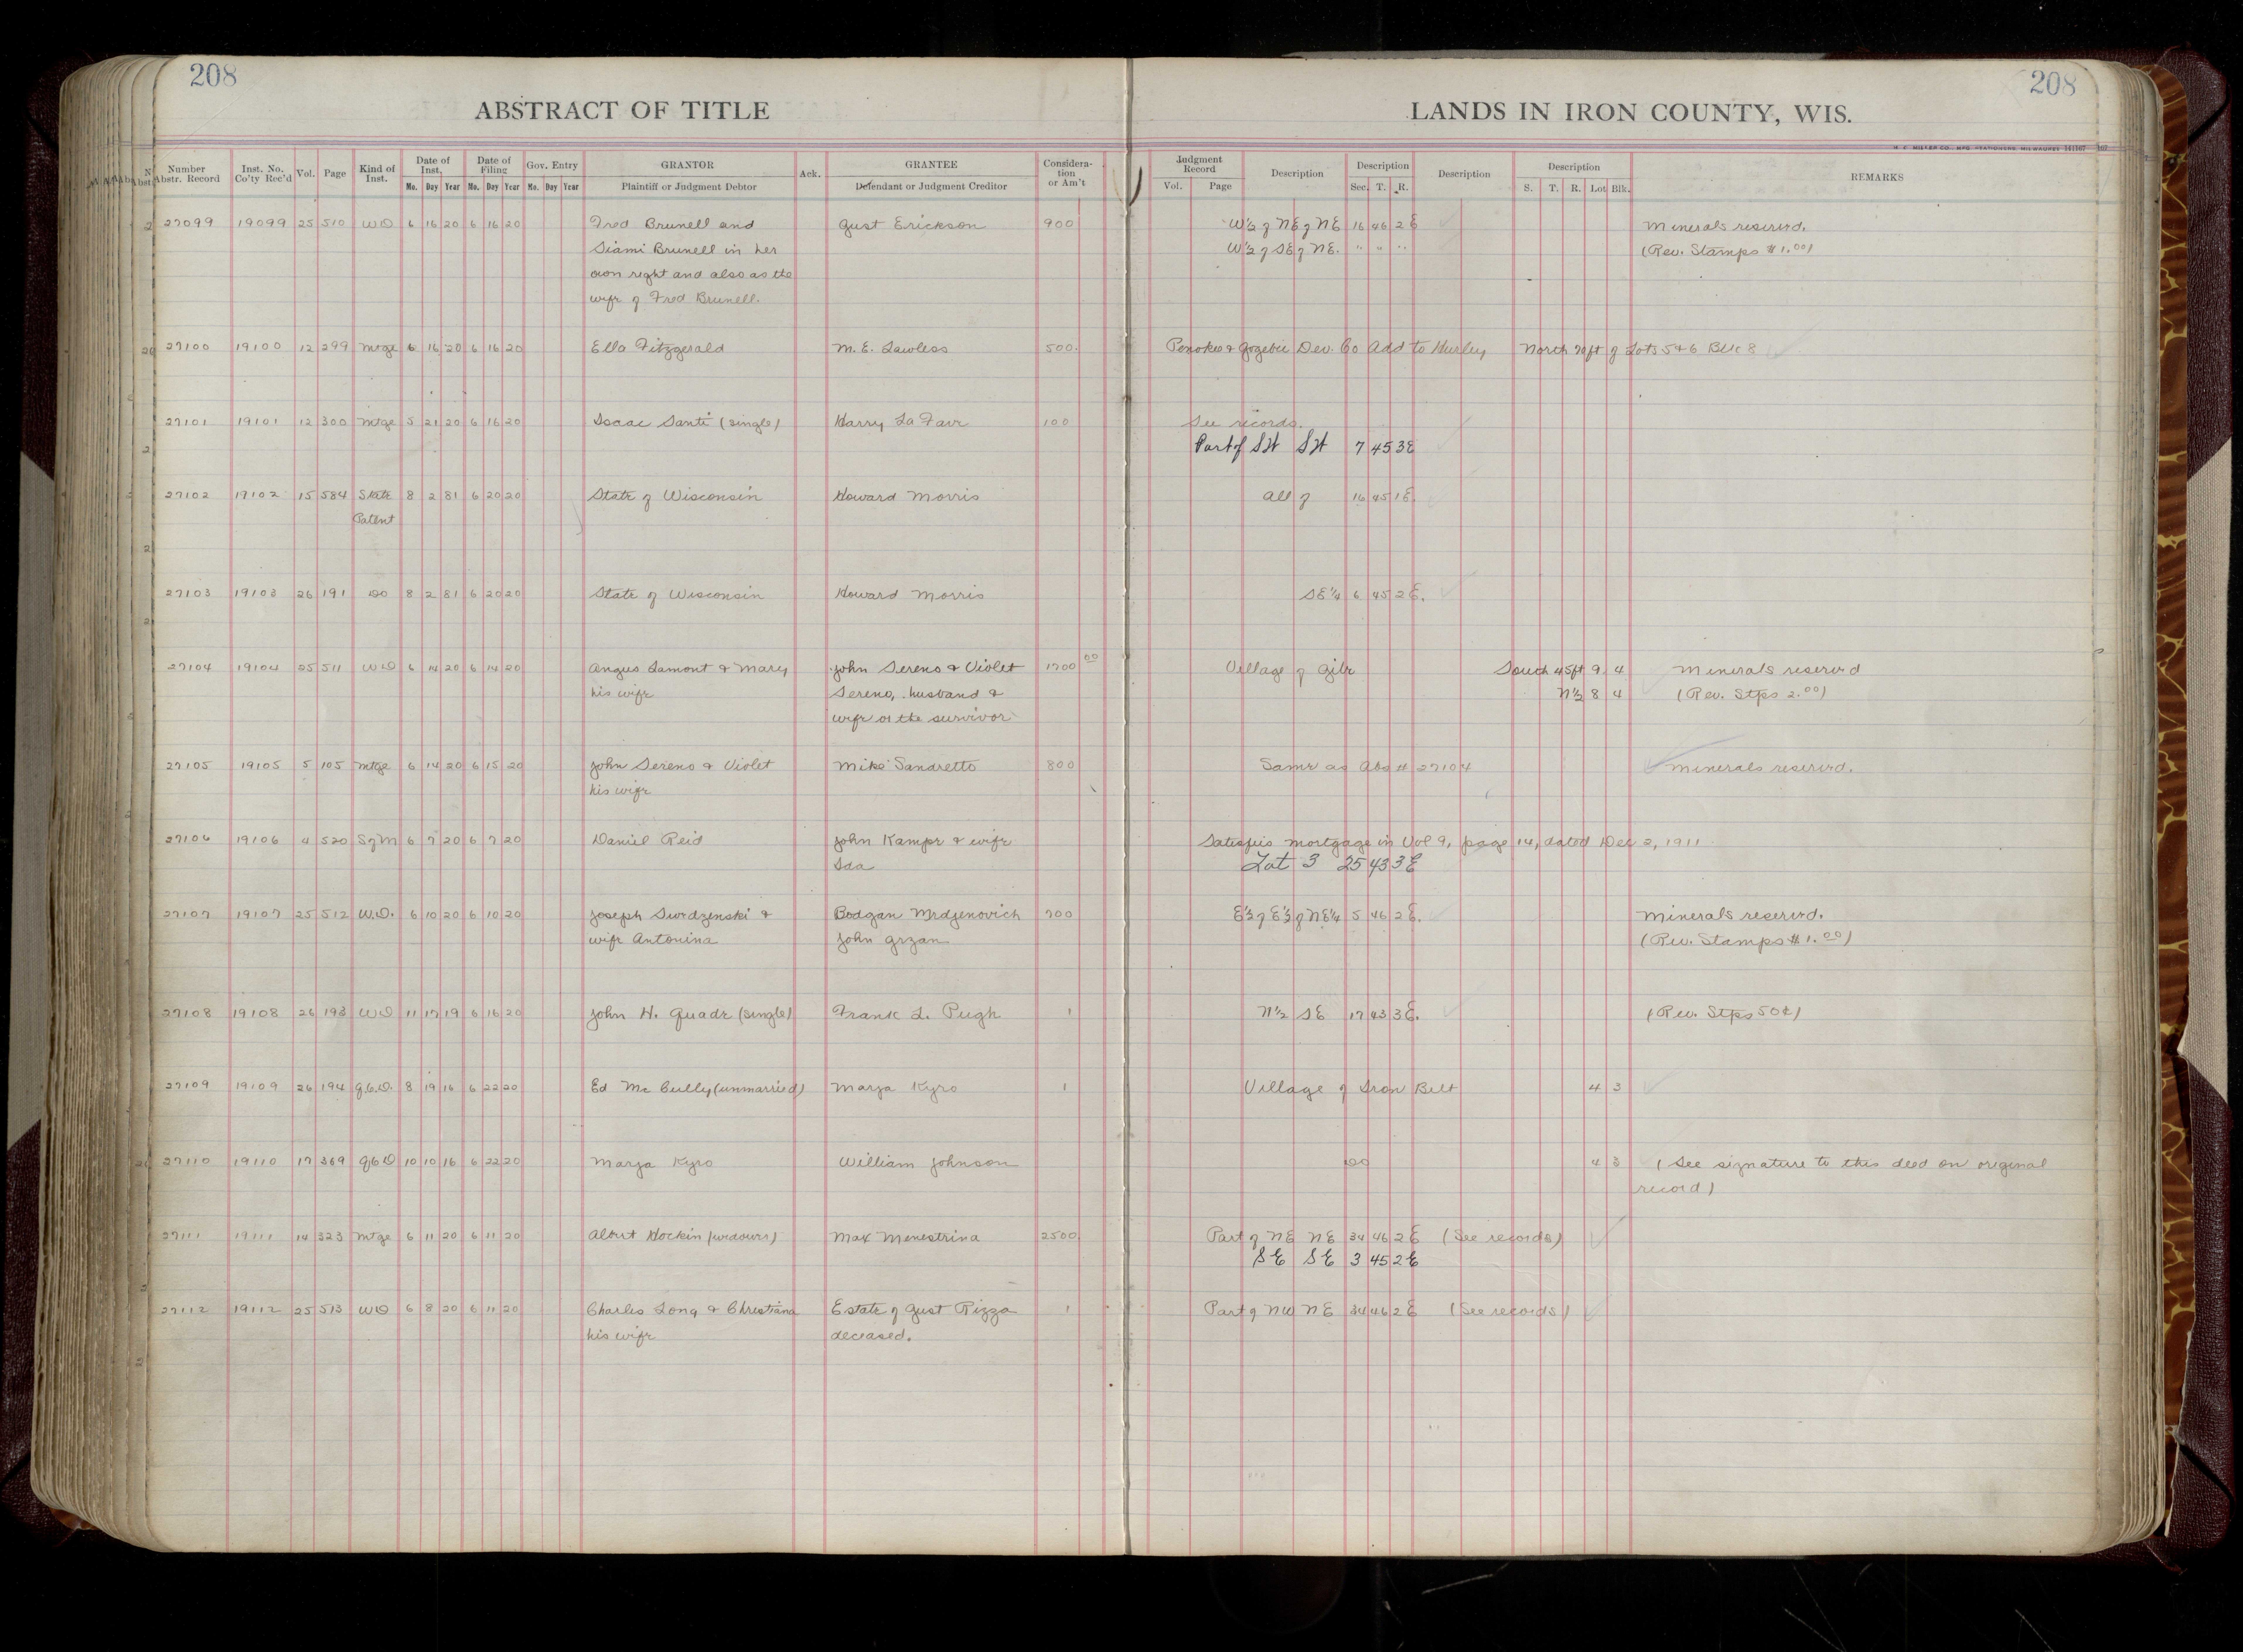 208
208
ABSTRACT OF TITLE
LANDS IN IRON COUNTY, WIS.
H. C. MILLER CO., MFG. STATIONERS, MILWAUKEE
Number Abstr. Record Inst. No. Co'ty Rec'd Vol. Page Kind of Inst. Date of Inst. Mo. Day Year Date of Filing Mo. Day Year Gov. Entry Mo. Day Year GRANTOR Plaintiff or Judgment Debtor Ack. GRANTEE Defendant or Judgment Creditor Considera-tion or Am't Judgment Record Vol. Page Description Description Sec. T. R. Description Description S. T. R. Lot Blk. REMARKS
27099 19099 25 510 WD 6 16 20 6 16 20 Fred Brunell and Gust Erickson 900 W½ of NE of NE 16 46 2 E Minerals reserved.
Siami Brunell in her W½ of SE of NE. " " " (Rev. Stamps $1.00)
own right and also as the
wife of Fred Brunell.
27100 19100 12 299 Mtge 6 16 20 6 16 20 Ella Fitzgerald M. E. Lawless 500. Penokee & Gogebic Dev. Co Add to Hurley North 70 ft of Lots 5 & 6 Blk 8
27101 19101 12 300 Mtge 5 21 20 6 16 20 Isaac Santi (single) Harry La Fave 100 See records.
Part of SW SW 7 45 3E
27102 19102 15 584 State 8 2 81 6 20 20 State of Wisconsin Howard Morris All of 16 45 1 E.
Patent
27103 19103 26 191 Do 8 2 81 6 20 20 State of Wisconsin Howard Morris SE¼ 6 45 2 E.
27104 19104 25 511 WD 6 14 20 6 14 20 Angus Lamont & Mary John Sereno & Violet 1700 00 Village of Gile South 45 ft 9 4 Minerals reserved
his wife Sereno, husband & N½ 8 4 (Rev. Stps 2.00)
wife or the survivor
27105 19105 5 105 Mtge 6 14 20 6 15 20 John Sereno & Violet Mike Sandretto 800 Same as Abs # 27104 Minerals reserved.
his wife
27106 19106 4 520 S of M 6 7 20 6 7 20 Daniel Reid John Kampe & wife Satisfies mortgage in Vol 9, page 14, dated Dec 2, 1911
Ida Lot 3 25 43 3 E
27107 19107 25 512 W.D. 6 10 20 6 10 20 Joseph Swedzenski & Bodgan Mrdjenovich 700 E½ of E½ of NE¼ 5 46 2 E. Minerals reserved.
wife Antonina John Grzan (Rev. Stamps $1.00)
27108 19108 26 193 WD 11 17 19 6 16 20 John H. Quade (single) Frank L. Pugh 1 N½ SE 17 43 3 E. (Rev. Stps 50¢)
27109 19109 26 194 Q.C.D. 8 19 16 6 22 20 Ed Mc Cully (unmarried) Marja Kyro 1 Village of Iron Belt 4 3
27110 19110 17 369 QCD 10 10 16 6 22 20 Marja Kyro William Johnson Do 4 3 (See signature to this deed on original
record)
27111 19111 14 323 Mtge 6 11 20 6 11 20 Albert Hockin (widower) Max Menestrina 2500 Part of NE NE 34 46 2 E (See records)
SE SE 3 45 2 E
27112 19112 25 513 WD 6 8 20 6 11 20 Charles Long & Christiana Estate of Gust Rizza 1 Part of NW NE 34 46 2 E (See records)
his wife deceased.